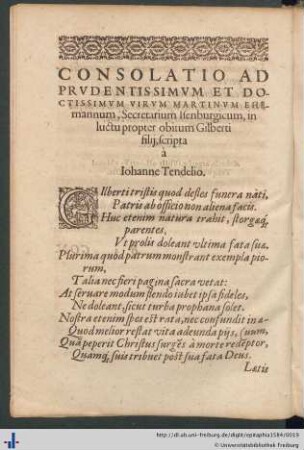 CONSOLATIO AD
PRVDENTISSIMVM ET DO-
CTISSIMVM VIRVM MARTINVM EHE-
mannum, Secretarium Isenburgicum, in
luctu propter obitum Gilberti
filij, scripta
à
Iohanne Tendelio.
GIlberti tristis quod defles funera nati,
Patris ab officio non aliena facis.
Huc etenim natura trahit, storgæq́;
parentes,
Vt prolis doleant vltima fata suæ.
Plurima quòd patrum monstrant exempla pio-
rum,
Talia nec fieri pagina sacra vetat:
At seruare modum flendo iubet ipsa fideles,
Ne doleant, sicut turba prophana solet.
Nostra etenim spes est rata, nec confundit in æ-
Quod melior restat vita adeunda pijs, (uum,
Quã peperit Christus surgẽs à morte redẽptor,
Quamq́; suis tribuet post sua fata Deus.
Lætis
http://dl.ub.uni-freiburg.de/diglit/epitaphia1584/0019
© Universitätsbibliothek Freiburg